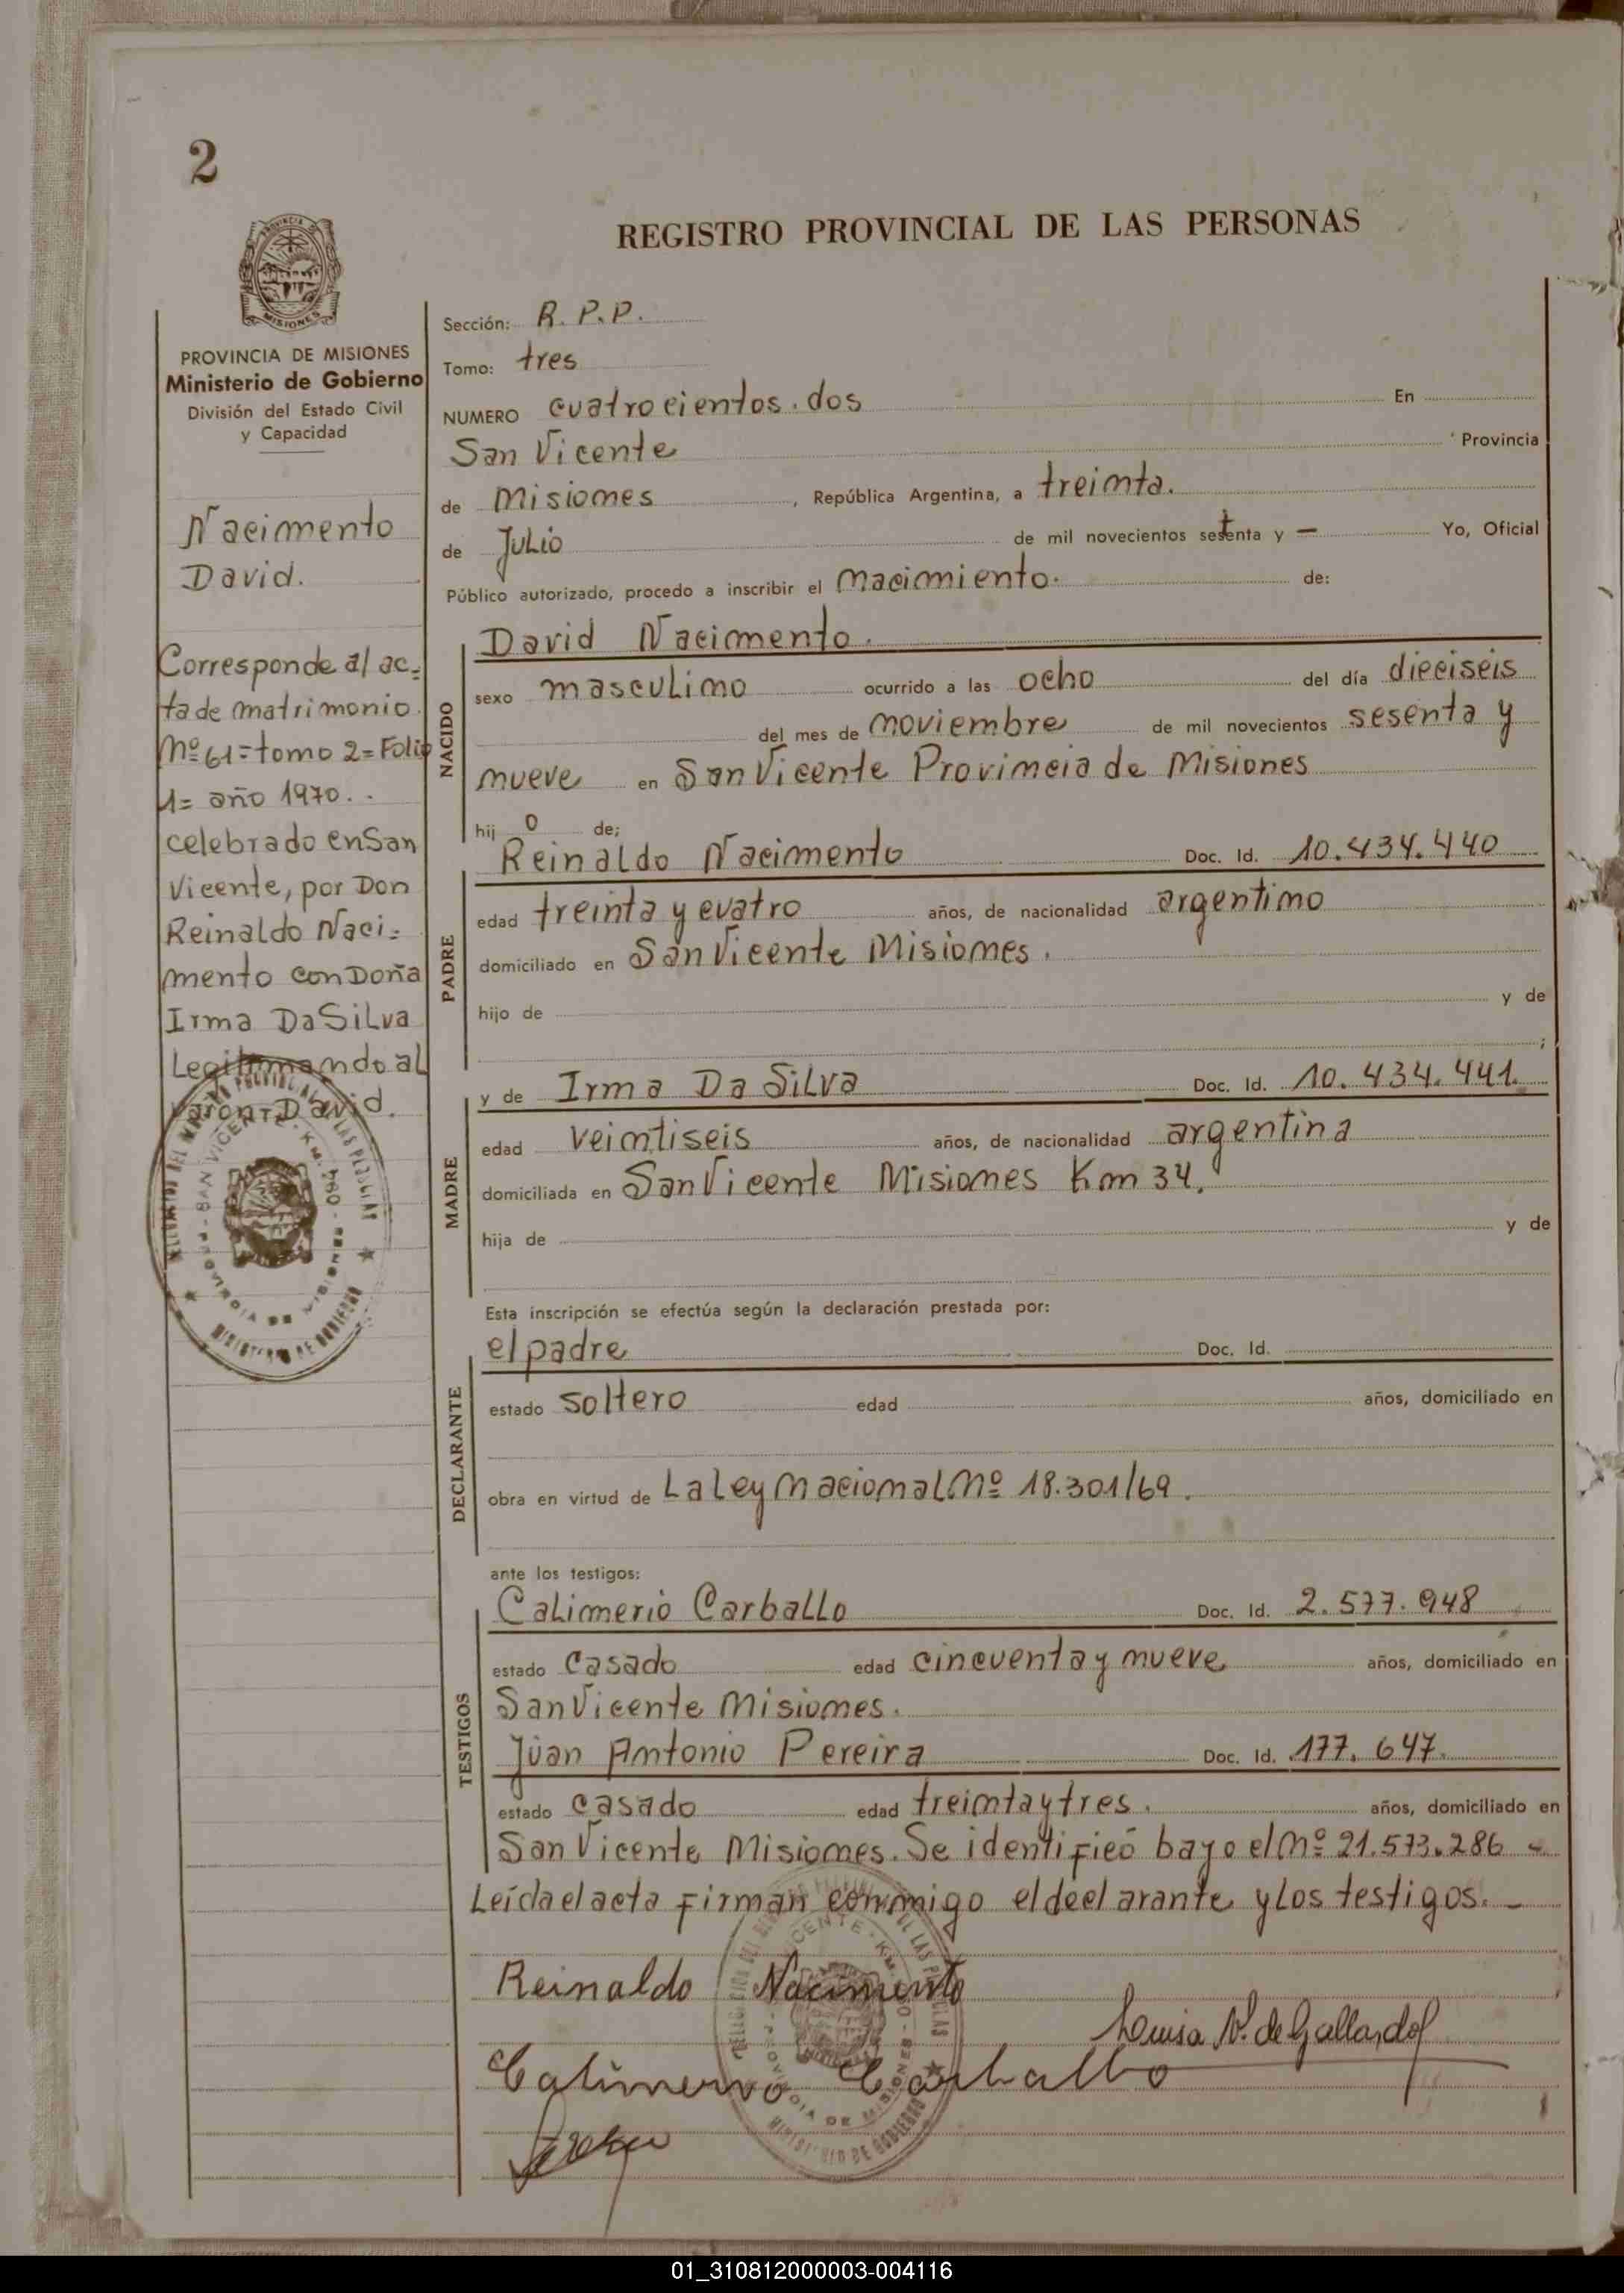 2
REGISTRO PROVINCIAL DE LAS PERSONAS
MISIONES
PROVINCIA DE MISIONES
Ministerio de Gobierno
División del Estado Civil
y Capacidad
Nacimento
David.
Corresponde al ac=
ta de matrimonio.
Nº 61= tomo 2= Folio
1= año 1970. .
celebrado en San
Vicente, por Don
Reinaldo Naci=
mento con Doña
Irma Da Silva
Legitimando al
Varon: David.
Sección: R. P. P.
Tomo: tres
NUMERO cuatrocientos. dos En
San Vicente Provincia
de Misiones , República Argentina, a treinta.
de Julio de mil novecientos setenta y — Yo, Oficial
Público autorizado, procedo a inscribir el nacimiento. de:
NACIDO
David Nacimento.
sexo masculino ocurrido a las ocho del día dieciseis
del mes de noviembre de mil novecientos sesenta y
nueve en San Vicente Provincia de Misiones
hij o de;
PADRE
Reinaldo Nacimento Doc. Id. 10.434.440
edad treinta y cuatro años, de nacionalidad argentino
domiciliado en San Vicente Misiones.
hijo de y de
;
MADRE
y de Irma Da Silva Doc. Id. 10.434.441.
edad veintiseis años, de nacionalidad argentina
domiciliada en San Vicente Misiones Km 34.
hija de y de
Esta inscripción se efectúa según la declaración prestada por:
DECLARANTE
el padre Doc. Id.
estado soltero edad años, domiciliado en
obra en virtud de La Ley Nacional Nº 18.301/69.
ante los testigos:
TESTIGOS
Calimerio Carballo Doc. Id. 2.577.948
estado casado edad cincuenta y nueve años, domiciliado en
San Vicente Misiones.
Juan Antonio Pereira Doc. Id. 177.647.
estado casado edad treinta y tres. años, domiciliado en
San Vicente Misiones. Se identificó bajo el Nº 21.573.286 -
Leída el acta firman conmigo el declarante y los testigos. -
Reinaldo Nacimento
Luisa N. de Gallardo
Calimerio Carballo
01_310812000003-004116